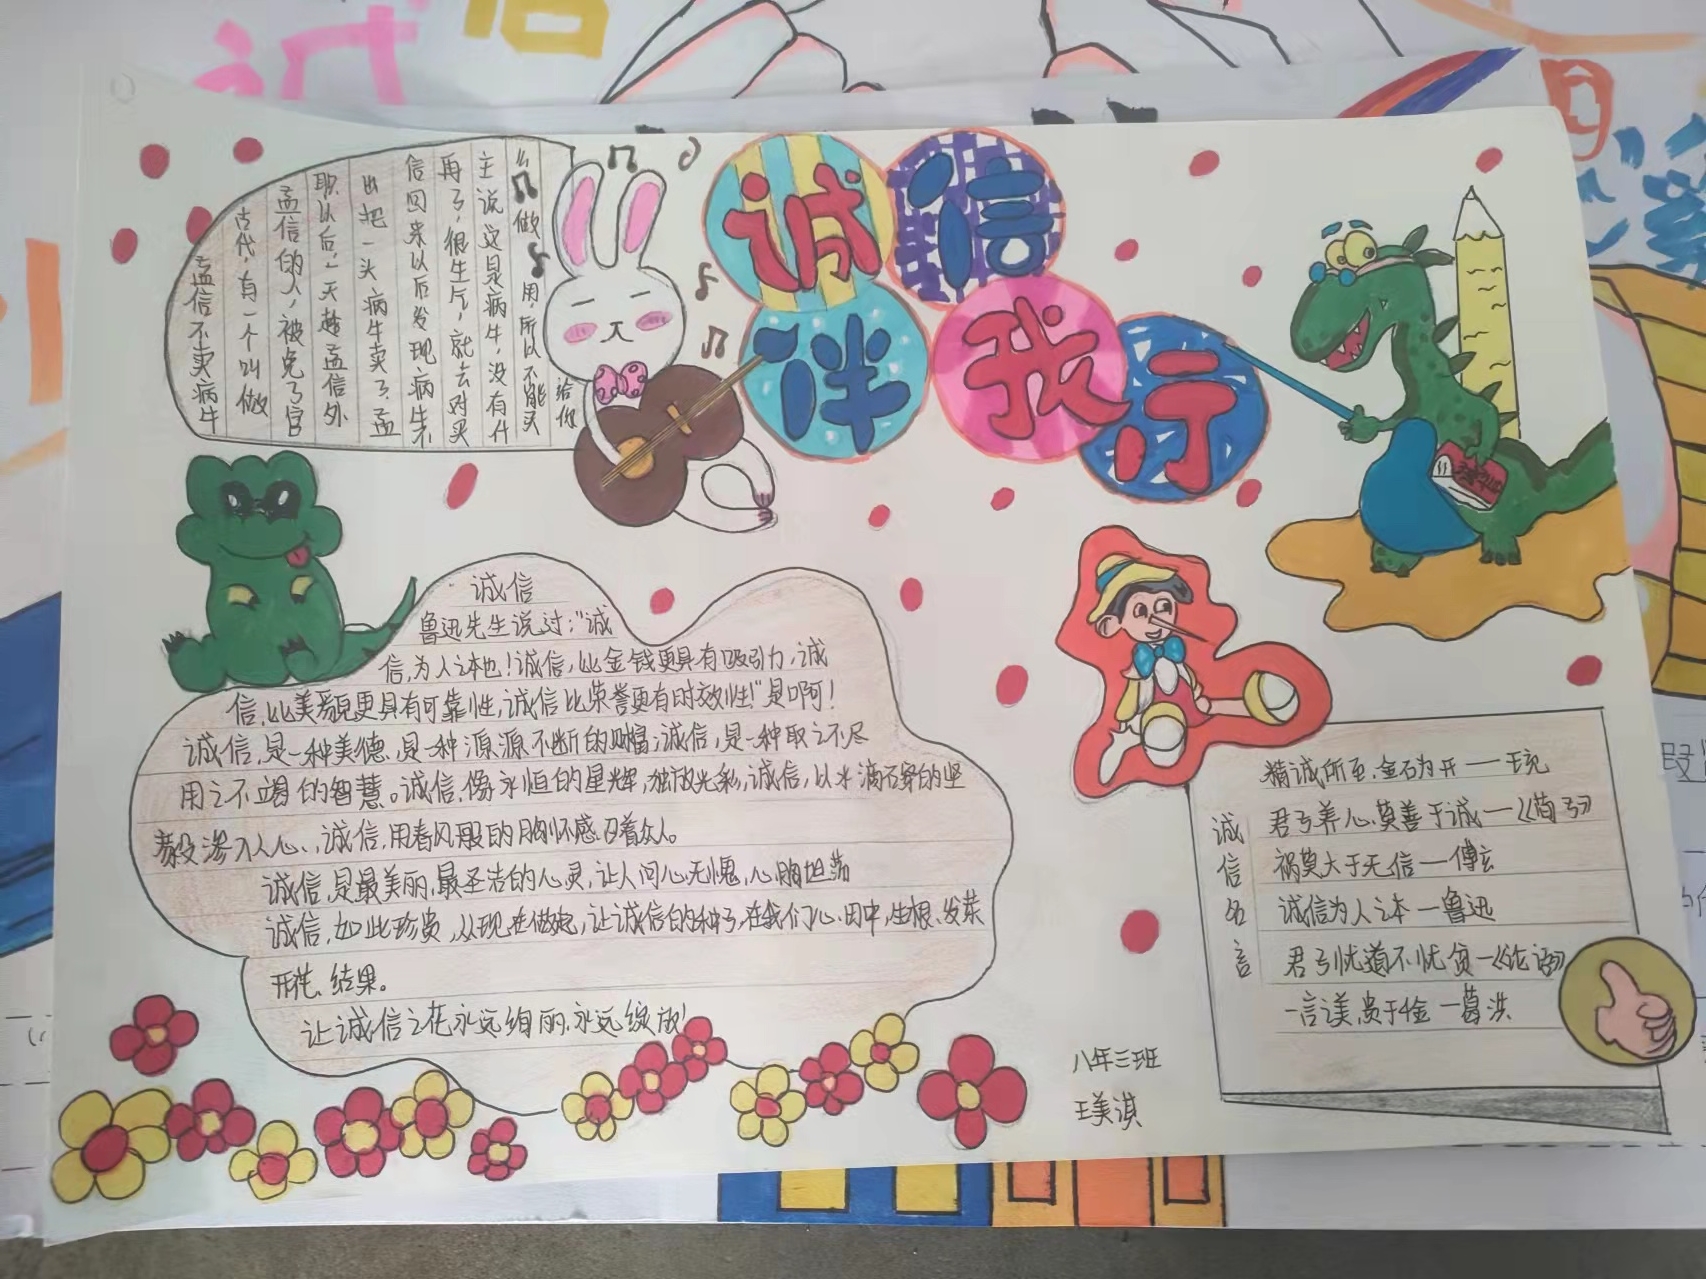 诚信
伴我行
孟信不卖病牛
古代,有一个叫做
孟信的人,被免了官
职以后,一天趁孟信外
出把一头病牛卖了,孟
信回来以后发现病牛不
再了,很生气,就去对买
主说这是病牛,没有什
么做用,所以不能买
给你
诚信
鲁迅先生说过:“诚
信,为人之本也!诚信,比金钱更具有吸引力,诚
信,比美貌更具有可靠性,诚信比荣誉更有时效性!”是啊!
诚信,是一种美德,是一种源源不断的财富;诚信,是一种取之不尽
用之不竭的智慧。诚信,像永恒的星辉,独放光彩,诚信,以水滴石穿的坚
毅渗入人心、,诚信,用春风般的胸怀感召着众人。
诚信,是最美丽,最圣洁的心灵,让人问心无愧,心胸坦荡
诚信,如此珍贵,从现在做起,让诚信的种子,在我们心田中,生根、发芽
开花、结果。
让诚信之花永远绚丽,永远绽放!
诚信名言
精诚所至,金石为开——王充
君子养心,莫善于诚—《荀子》
祸莫大于无信—傅玄
诚信为人之本—鲁迅
君子忧道不忧贫—《论语》
一言之美,贵于千金—葛洪
八年三班
王美淇